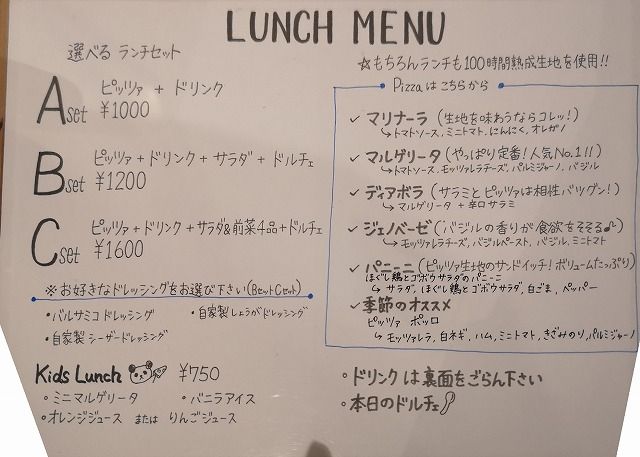 LUNCH MENU
選べる ランチセット
A set ピッツァ + ドリンク
¥1000
B set ピッツァ + ドリンク + サラダ + ドルチェ
¥1200
C set ピッツァ + ドリンク + サラダ&前菜4品+ドルチェ
¥1600
※お好きなドレッシングをお選び下さい(BセットCセット)
・バルサミコドレッシング ・自家製しょうがドレッシング
・自家製シーザードレッシング
Kids Lunch ¥750
・ミニマルゲリータ ・バニラアイス
・オレンジジュース または りんごジュース
☆もちろんランチも100時間熟成生地を使用!!
Pizzaは こちらから
✓ マリナーラ (生地を味わうならコレッ!)
↳トマトソース、ミニトマト、にんにく、オレガノ
✓ マルゲリータ (やっぱり定番!人気No.1!!)
↳トマトソース、モッツァレラチーズ、パルミジャーノ、バジル
✓ ディアボラ (サラミとピッツァは相性バツグン!)
↳マルゲリータ + 辛口サラミ
✓ ジェノベーゼ (バジルの香りが食欲をそそる♪)
↳モッツァレラチーズ、バジルペースト、バジル、ミニトマト
✓ パニーニ (ピッツァ生地のサンドイッチ!ボリュームたっぷり)
ほぐし鶏とゴボウサラダのパニーニ
↳ サラダ、ほぐし鶏とゴボウサラダ、白ごま、ペッパー
✓ 季節のオススメ
ピッツァ ポッロ
↳ モッツァレラ、白ネギ、ハム、ミニトマト、きざみのり、パルミジャーノ
・ドリンクは裏面をごらん下さい
・本日のドルチェ